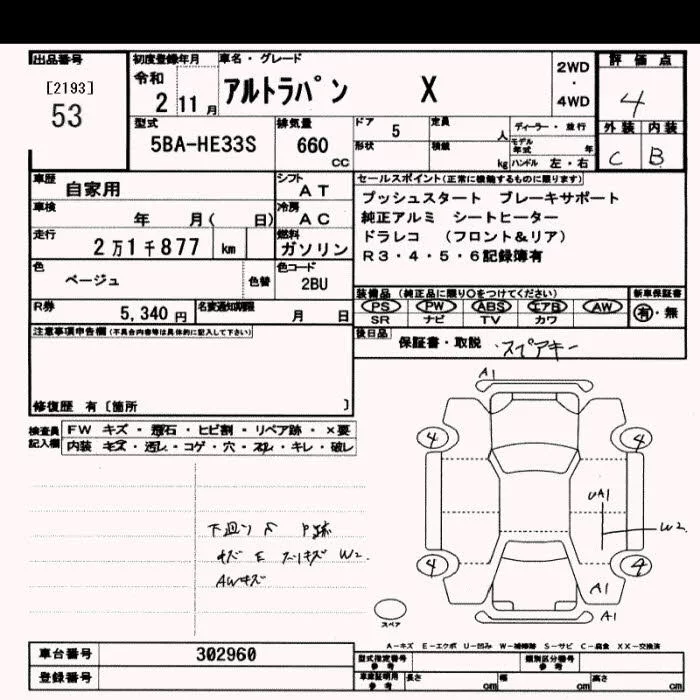 出品番号
[2193]
53
初度登録年月
令和
2 11月
車名・グレード
アルトラパン X
2WD
・
4WD
評価点
4
外装 内装
C B
型式
5BA-HE33S
排気量
660
CC
ドア 5
形状
定員 人
積載 kg
ディーラー・並行
モデル年式 年
ハンドル 左・右
車歴 自家用
シフト AT
車検 年 月( 日)
冷房 AC
走行 2万1千877 km
燃料 ガソリン
色 ベージュ
色替
色コード 2BU
R券 5,340円
名変通知期限 月 日
セールスポイント(正常に機能するものに限ります)
プッシュスタート ブレーキサポート
純正アルミ シートヒーター
ドラレコ (フロント&リア)
R3・4・5・6記録簿有
装備品 (純正品に限り○をつけてください)
PS PW ABS エアB AW
SR ナビ TV カワ
新車保証書
有・無
後日品 保証書・取説 ・スペアキー
注意事項申告欄(不具合内容等は具体的に記入して下さい)
修復歴 有〔箇所 〕
検査員記入欄
FW キズ・飛石・ヒビ割・リペア跡・×要
内装 キズ・汚レ・コゲ・穴・スレ・キレ・破レ
下廻り
キズ E スリキズ W2.
AWキズ
A1
4 4
UA1
W2
4 4
A1
A1
スペア
A-キズ E-エクボ U-凹み W-補修跡 S-サビ C-腐食 XX-交換済
車台番号 302960
登録番号
型式指定番号
参考
類別区分番号
参考
車庫証明用
参考
長さ cm
幅 cm
高さ cm